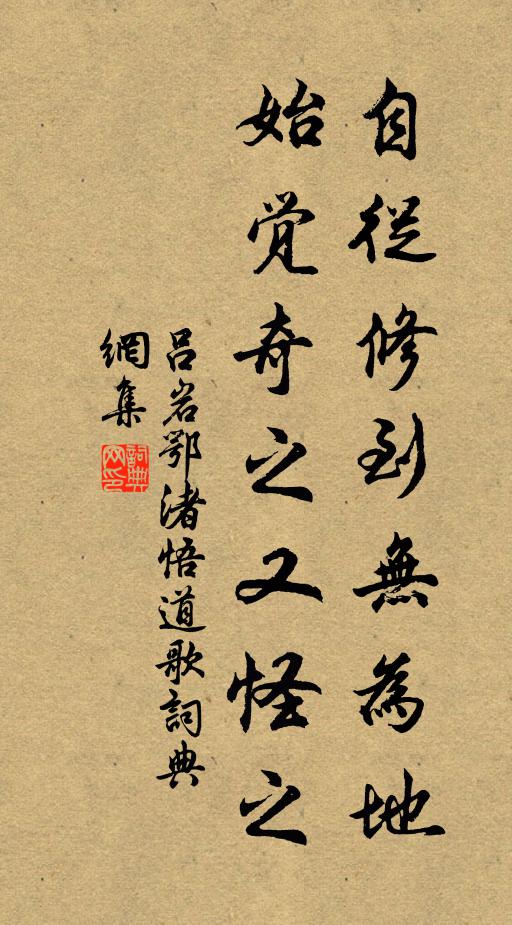 自從修到無為地
始覺奇之又怪之
呂岩鄂渚悟道歌詞典
網集
詞典網印